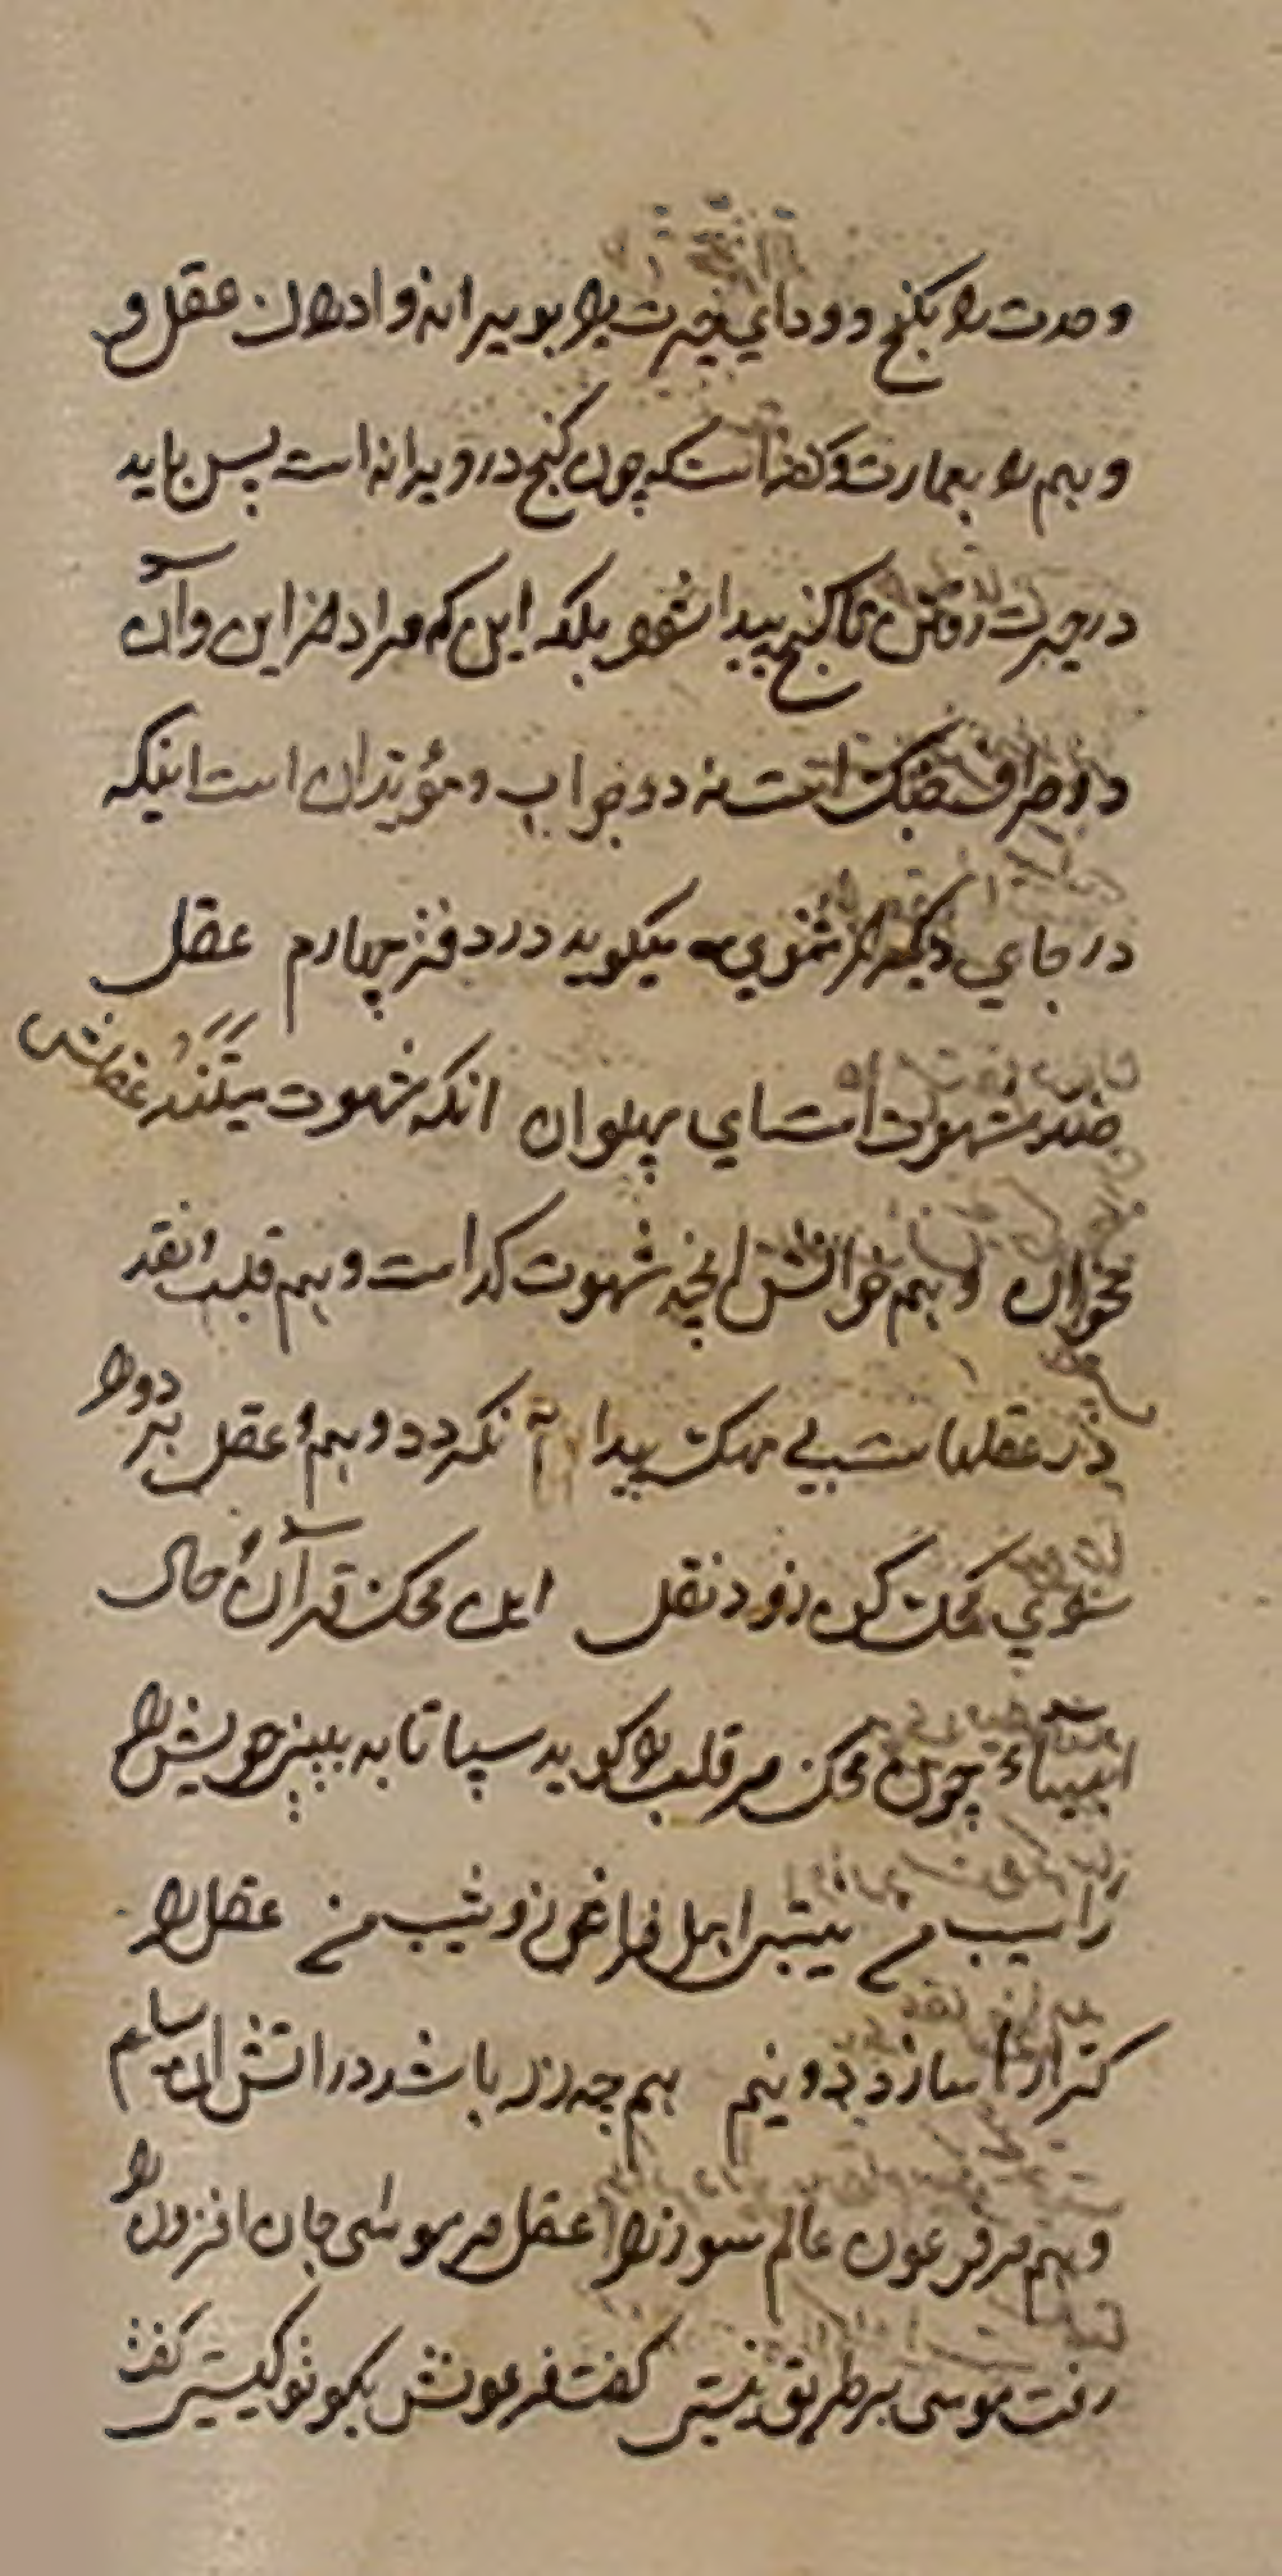 وحدت را بکنج و ودای حیرت را بویرانه و ادراک عقل و
وهم را بعمارت و گفته است که چون کنج در ویرانه است پس باید
در حیرت رفتن تا کنج پیدا شود بلکه این که مراد از این و آن
دو طرف است نه دو جواب و مؤید آن است اینکه
در جای دیگر از مثنوی میکوید در دفتر چهارم عقل
ضد شهوت است ای پهلوان انکه شهوت میتند عقلش
مخوان وهم خوانش انچه شهوت کدا است وهم قلب و نقد
زر عقلهاست بی محک پیدا نکردد وهم و عقل هر دو را
سوی محک کن زود نقل این محک قرآن و حال
انبیاء چون محک مر قلب را کوید بیا تا به بینی خویش را
ز آسیب من نیستی اهل فراز و شیب من عقل را
کر اره سازد دو نیم هم چه زر باشد در اتش او سلیم
وهم مر فرعون عالم سوز را عقل مر موسی جان افروز را
رفت موسی بر طریق نیستی کفت فرعونش بکو تو کیستی کفت